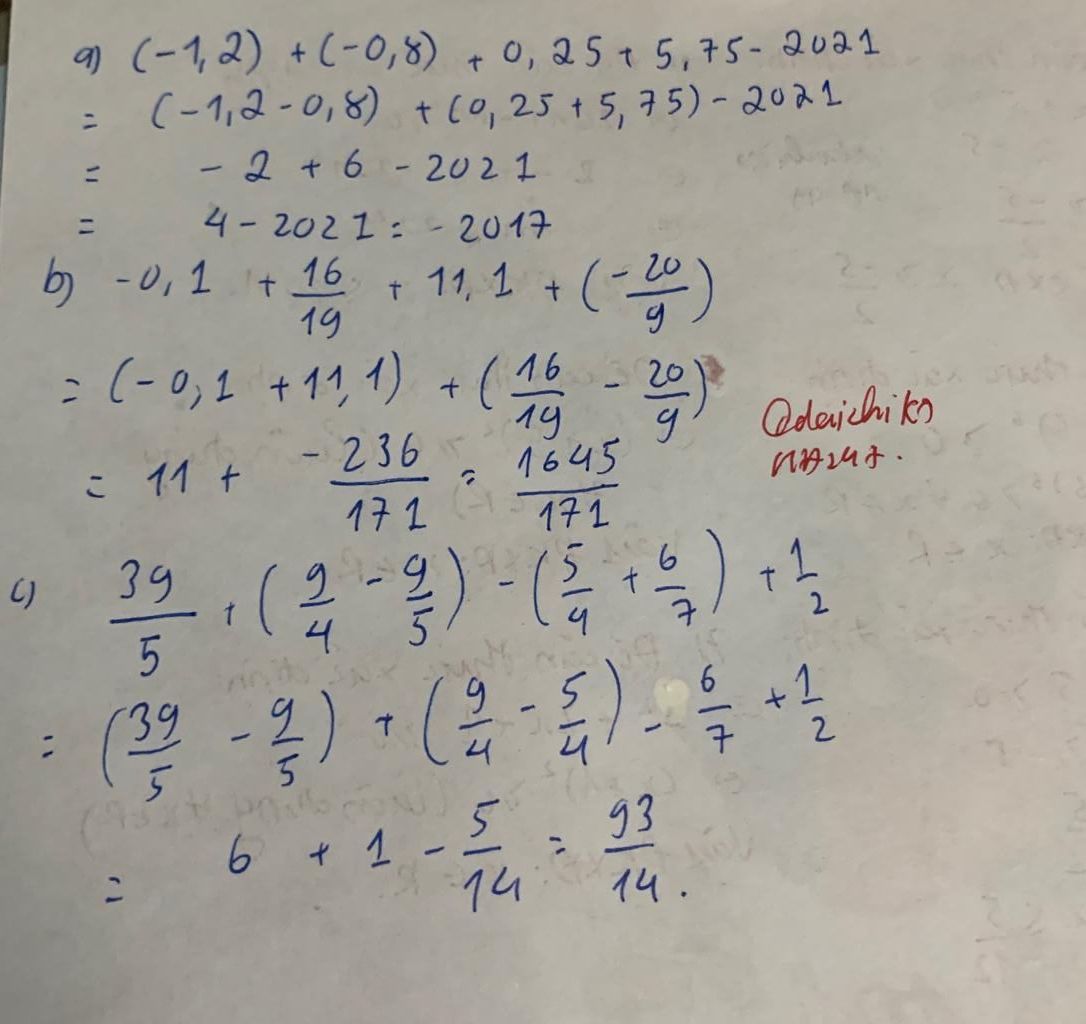 a) (-1,2) + (-0,8) + 0,25 + 5,75 - 2021
= (-1,2 - 0,8) + (0,25 + 5,75) - 2021
= - 2 + 6 - 2021
= 4 - 2021 = - 2017
b) -0,1 + 16/19 + 11,1 + (- 20/9)
= (-0,1 + 11,1) + (16/19 - 20/9)
= 11 + -236/171 = 1645/171
c) 39/5 + (9/4 - 9/5) - (5/4 + 6/7) + 1/2
= (39/5 - 9/5) + (9/4 - 5/4) - 6/7 + 1/2
= 6 + 1 - 5/14 = 93/14.